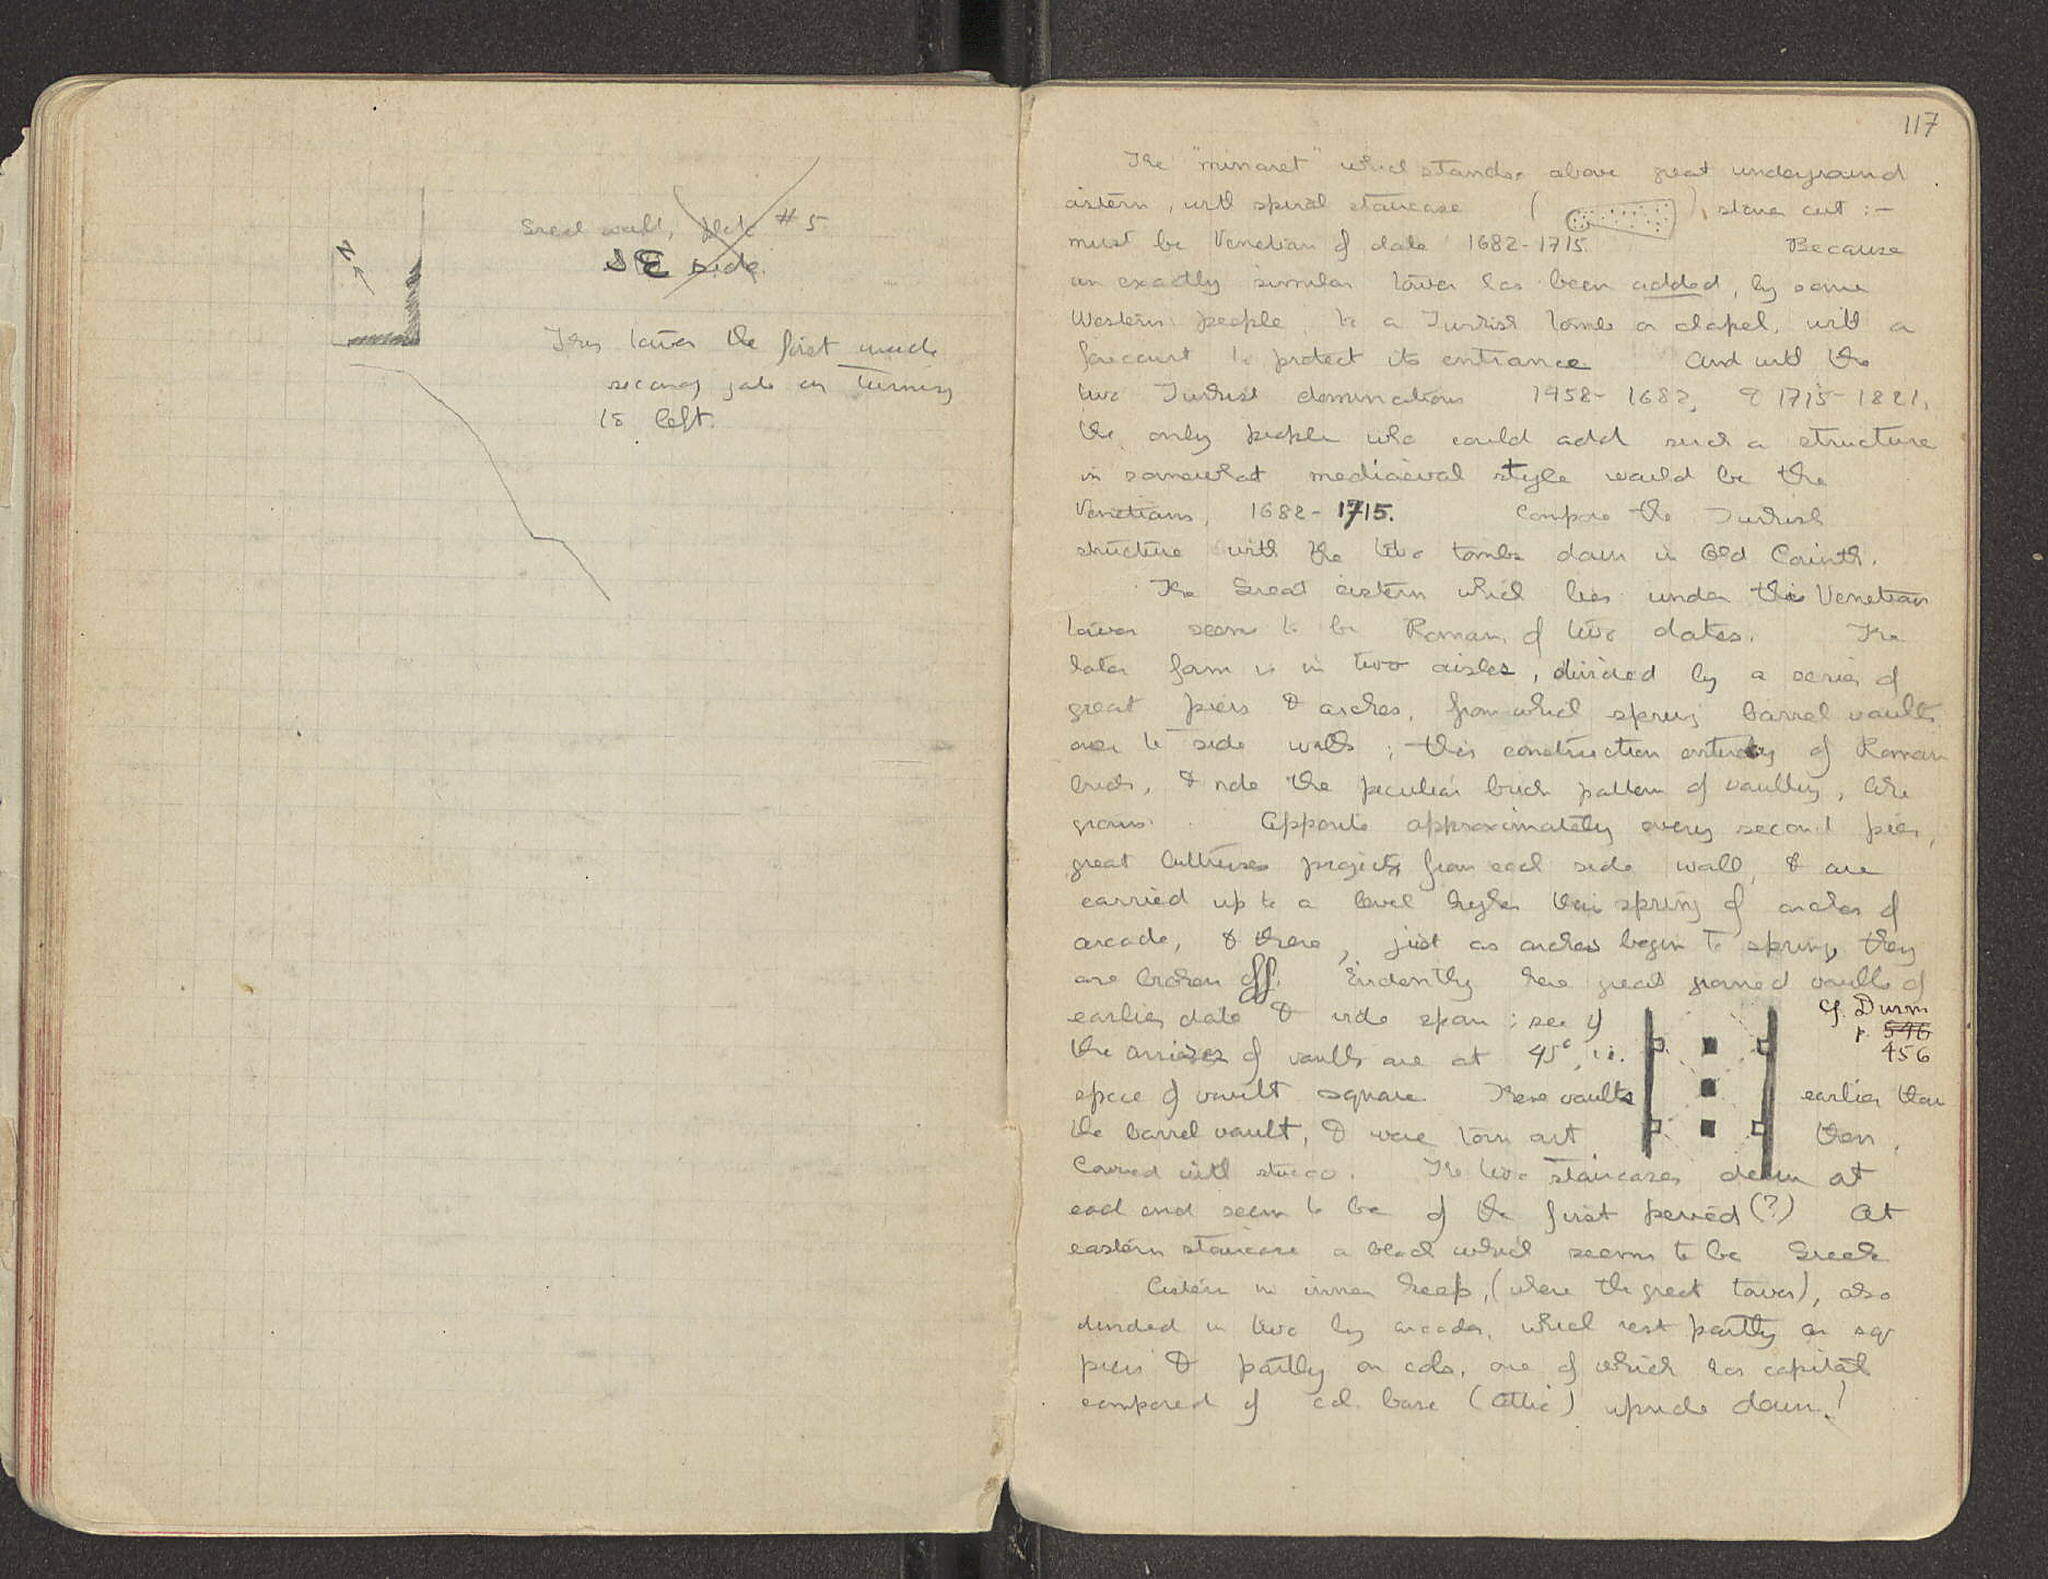 N
Greek wall, plate #5
SE side.
This tower the first inside
second gate on turning
to left.
117
The "minaret" which stands above great underground
cistern, with spiral staircase ( ), stone cut :-
must be Venetian of date 1682-1715. Because
an exactly similar tower has been added, by some
Western people, to a Turkish tomb or chapel, with a
forecourt to protect its entrance And with the
two Turkish dominations 1458-1682, & 1715-1821,
the only people who could add such a structure
in somewhat mediaeval style would be the
Venetians, 1682-1715. Compare the Turkish
structure with the two tombs down in Old Corinth.
The Great cistern which lies under this Venetian
tower seems to be Roman, of two dates. The
later form is in two aisles, divided by a series of
great piers & arches, from which spring barrel vaults
over to side walls ; this construction entirely of Roman
brick, & note the peculiar brick pattern of vaulting, like
groins. Opposite approximately every second pier,
great buttresses project from each side wall, & are
carried up to a level higher than spring of arches of
arcade, & there, just as arches begin to spring, they
are broken off. Evidently here great groined vaults of
earlier date & wide span ; see if
the arrises of vaults are at 45°, i.e.
cf. Durm
p. 546
456
space of vault square. These vaults earlier than
the barrel vault, & were torn out then.
Covered with stucco. The two staircases down at
each end seem to be of the first period (?) At
eastern staircase a block which seems to be Greek
Cistern in inner keep, (where the great tower), also
divided in two by arcades, which rest partly on sq
piers & partly on cols. one of which has capital
composed of col. base (Attic) upside down!